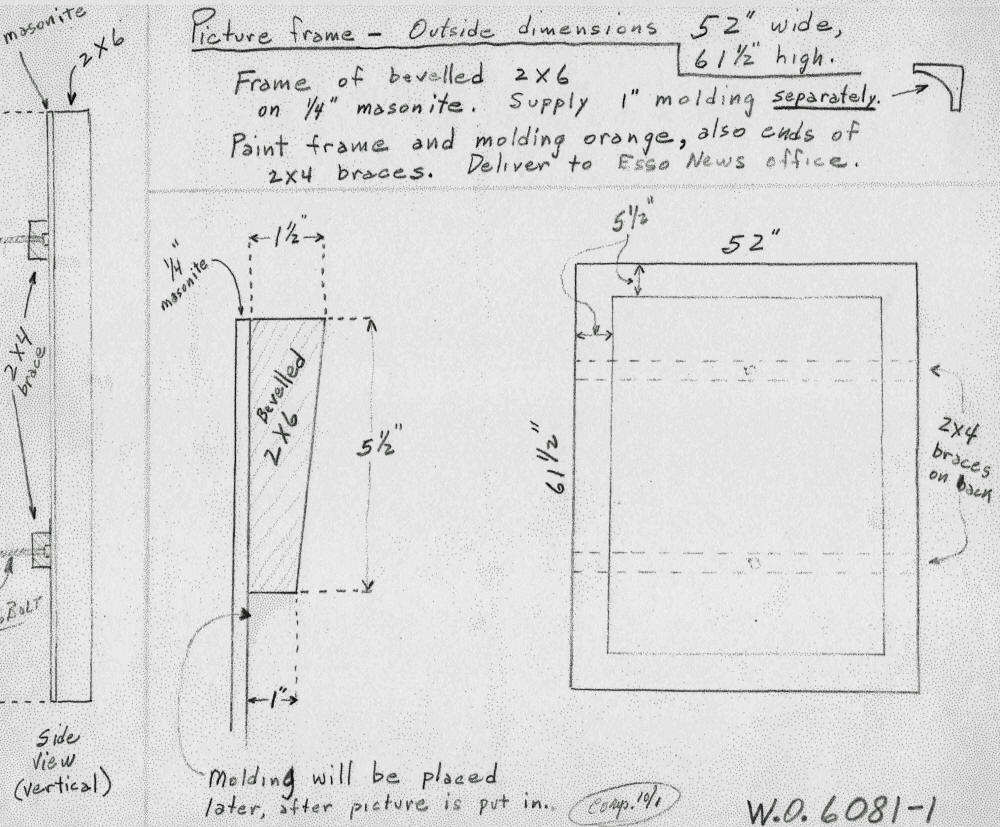 Picture frame – Outside dimensions 52" wide,
61 1/2" high.
Frame of bevelled 2X6
on 1/4" masonite. Supply 1" molding separately.
Paint frame and molding orange, also ends of
2X4 braces. Deliver to Esso News office.
masonite
2X6
2X4
brace
BOLT
Side
View
(vertical)
1 1/2"
1/4"
masonite
Bevelled
2X6
5 1/2"
1"
Molding will be placed
later, after picture is put in.
Comp. 10/1
5 1/2"
52"
61 1/2"
2X4
braces
on back
W.O. 6081-1